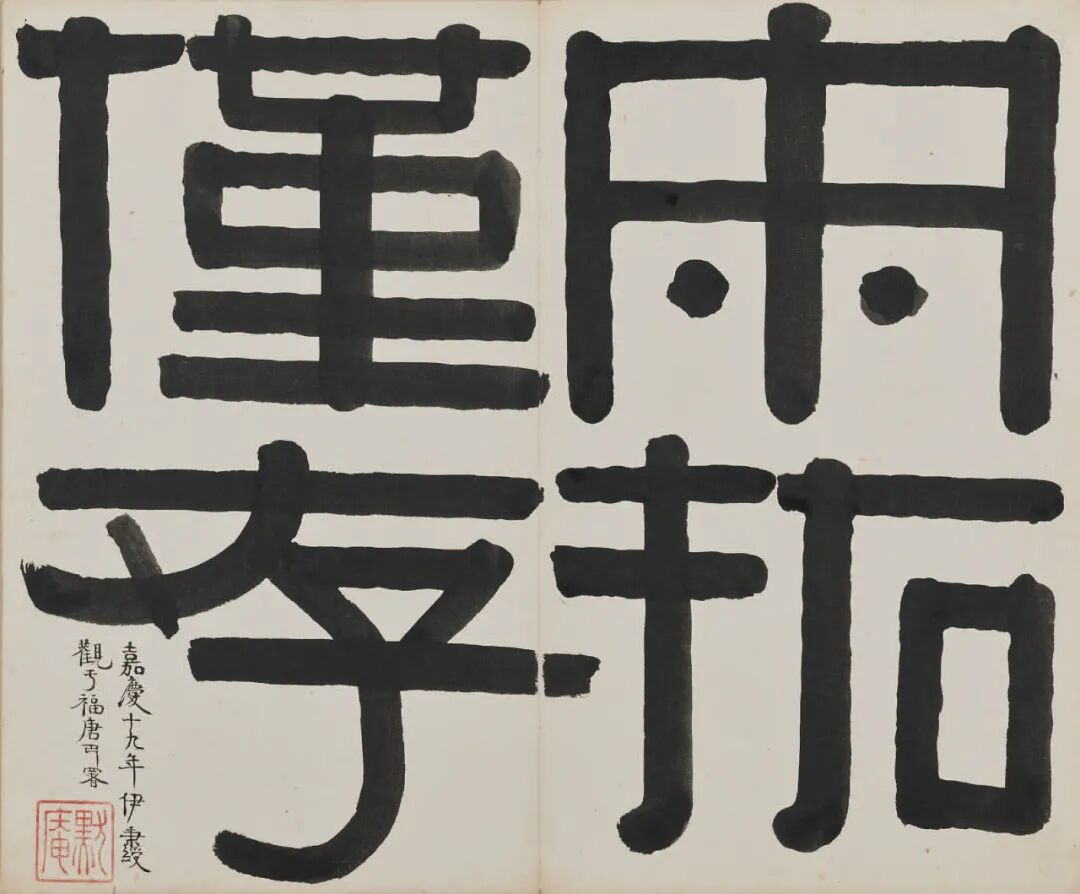 拓
僅存
嘉慶十九年伊秉綬
觀于福唐署
默庵